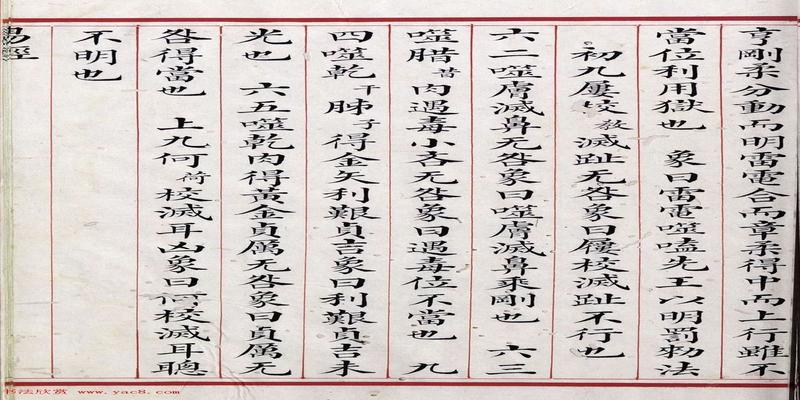 亨剛柔分動而明雷電合而章柔得中而上行雖不
當位利用獄也 象曰雷電噬嗑先王以明罰勑法
初九屨校教滅趾无咎象曰屨校滅趾不行也
六二噬膚滅鼻无咎象曰噬膚滅鼻乘剛也 六三
噬腊昔肉遇毒小吝无咎象曰遇毒位不當也 九
四噬乾干胏子得金矢利艱貞吉象曰利艱貞吉未
光也 六五噬乾肉得黃金貞厲无咎象曰貞厲无
咎得當也 上九何荷校滅耳凶象曰何校滅耳聰
不明也
易經
书法欣赏 www.yac8.com